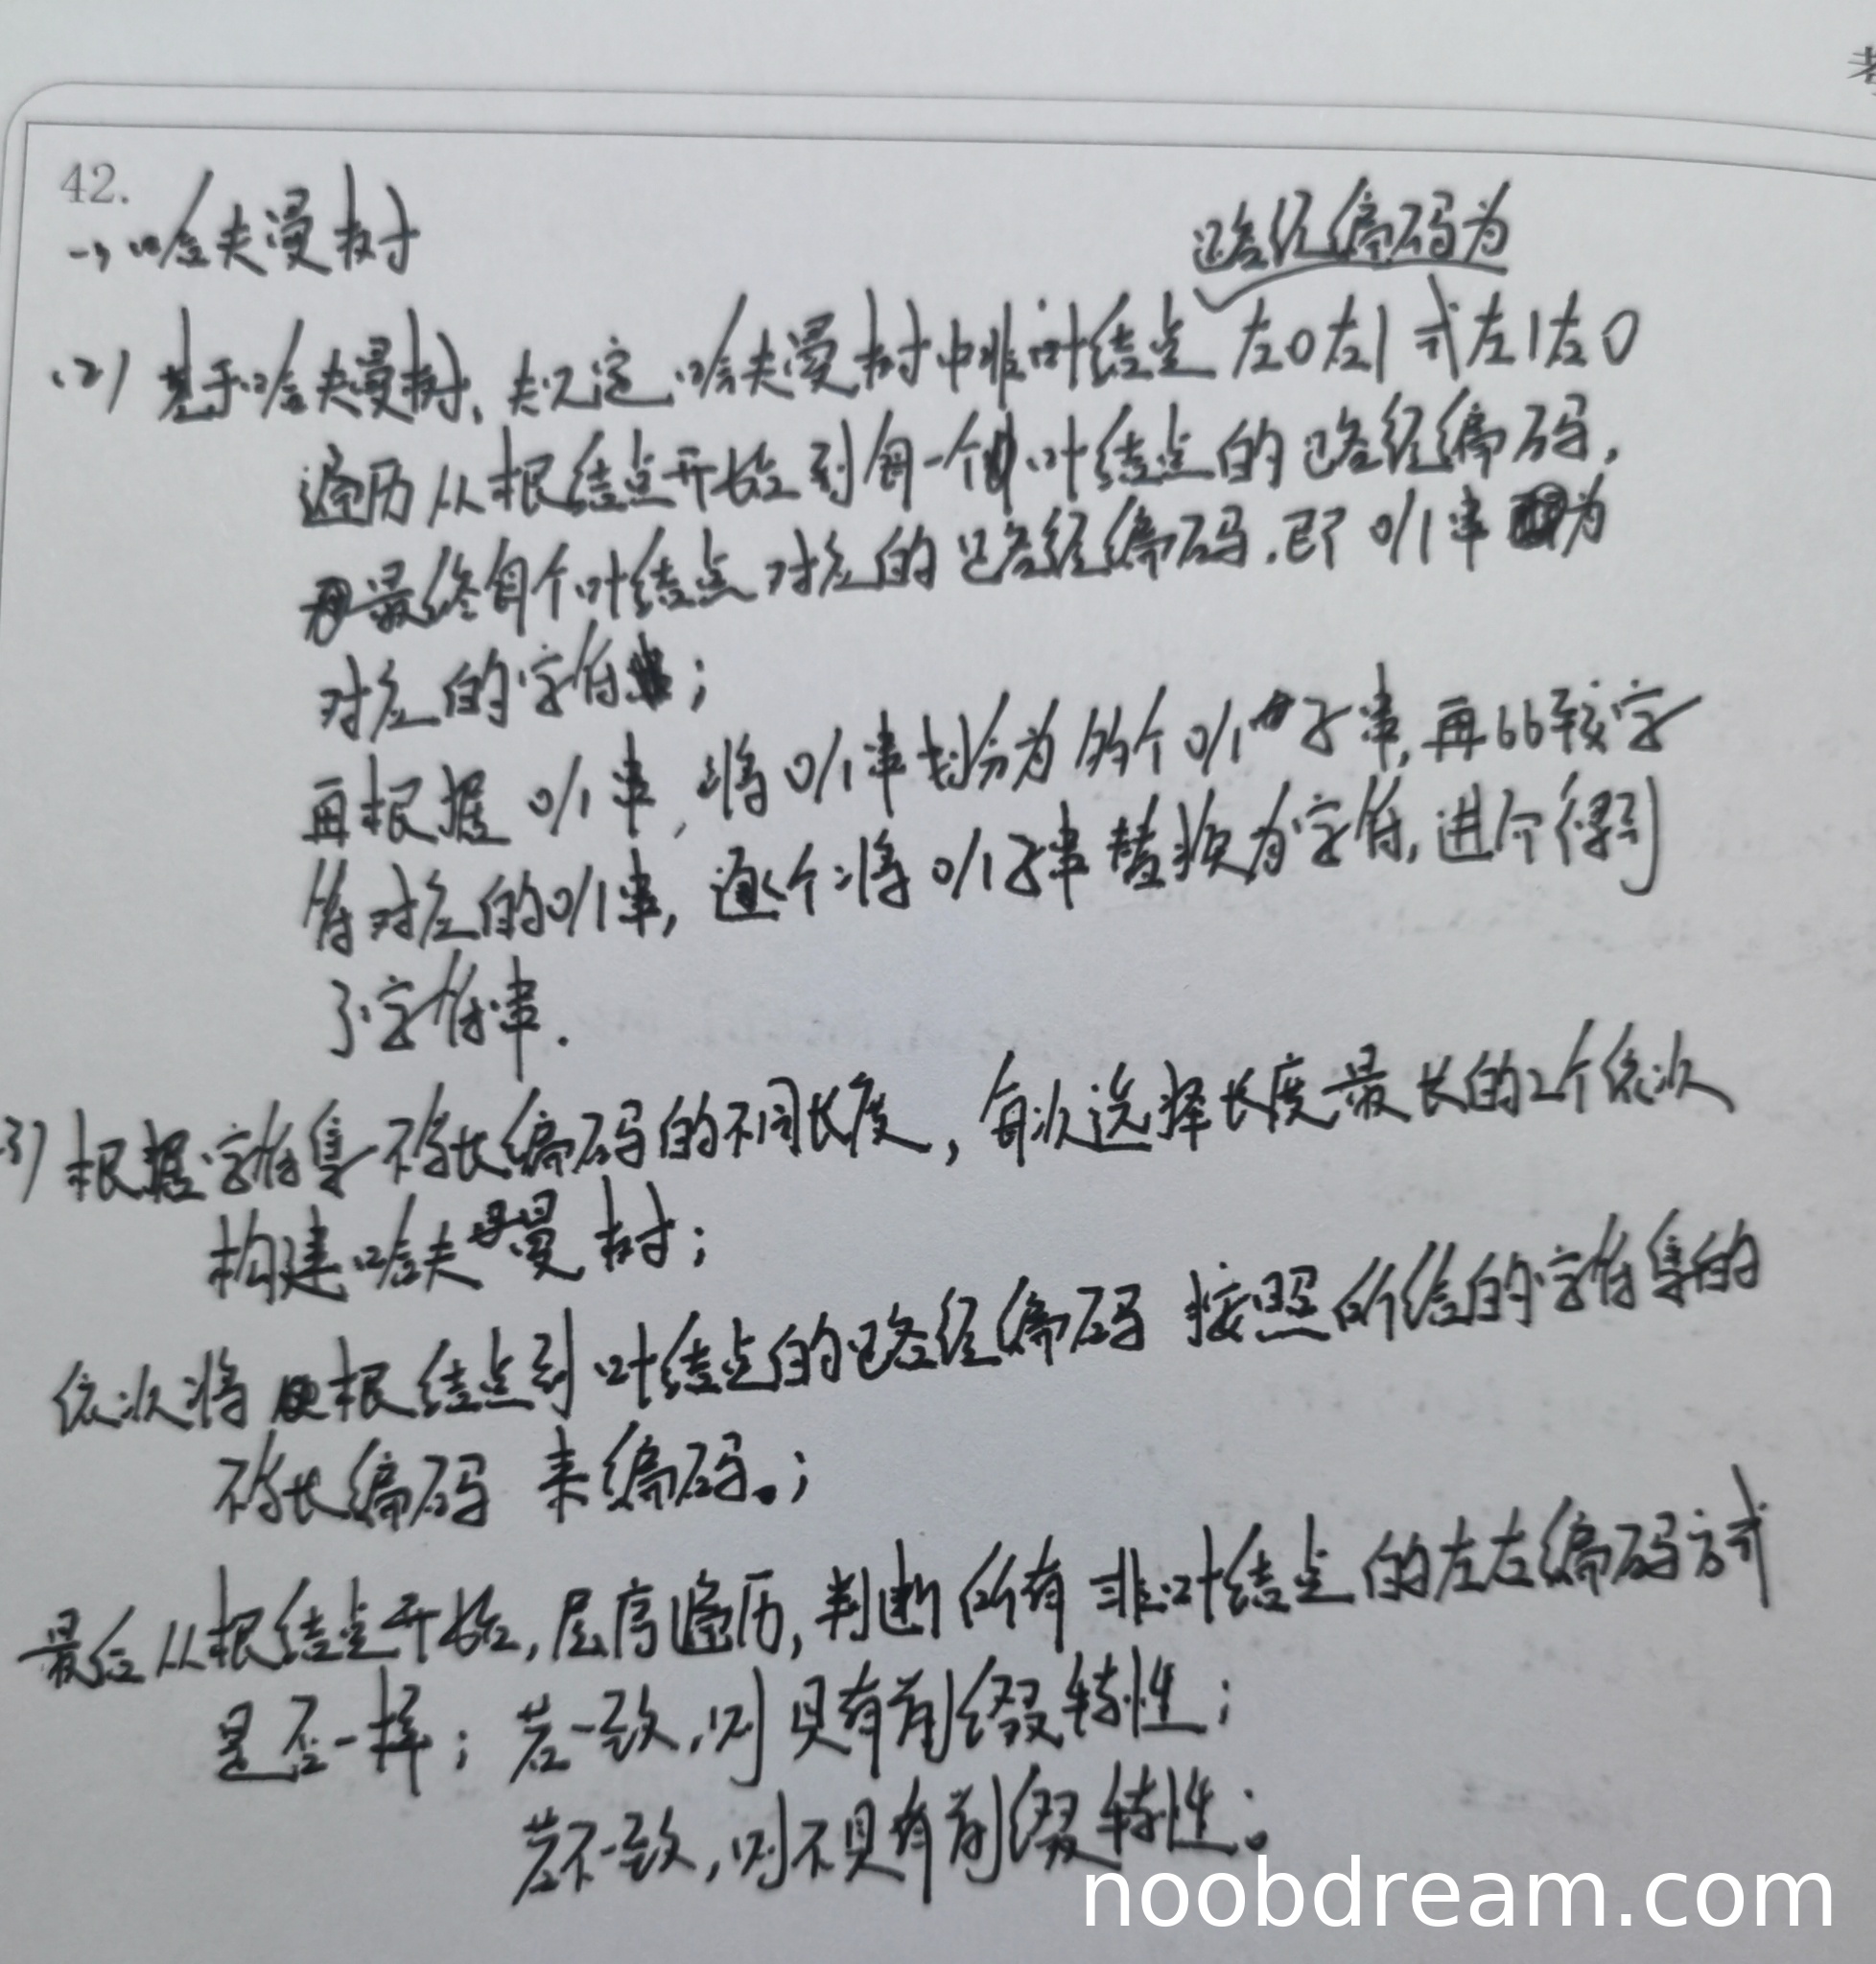 考
42.
(1) 哈夫曼树
路径编码为
(2) 基于哈夫曼树，规定哈夫曼树中非叶结点 左0右1 或左1右0
遍历从根结点开始到每一个叶结点的路径编码，
最终每个叶结点对应的路径编码，即 0/1串 为
对应的字符；
再根据 0/1串，将0/1串划分为多个0/1子串，再比较字
符对应的0/1串，逐个将0/1子串替换为字符，进而得到
了字符串．
(3) 根据字符集不等长编码的不同长度，每次选择长度最长的2个依次
构建哈夫曼树；
依次将根结点到叶结点的路径编码 按照所给的字符集的
不等长编码 来编码。；
最后从根结点开始，层序遍历，判断所有非叶结点的左右编码方式
是否一样；若一致，则具有前缀特性；
若不一致，则不具有前缀特性。
noobdream.com